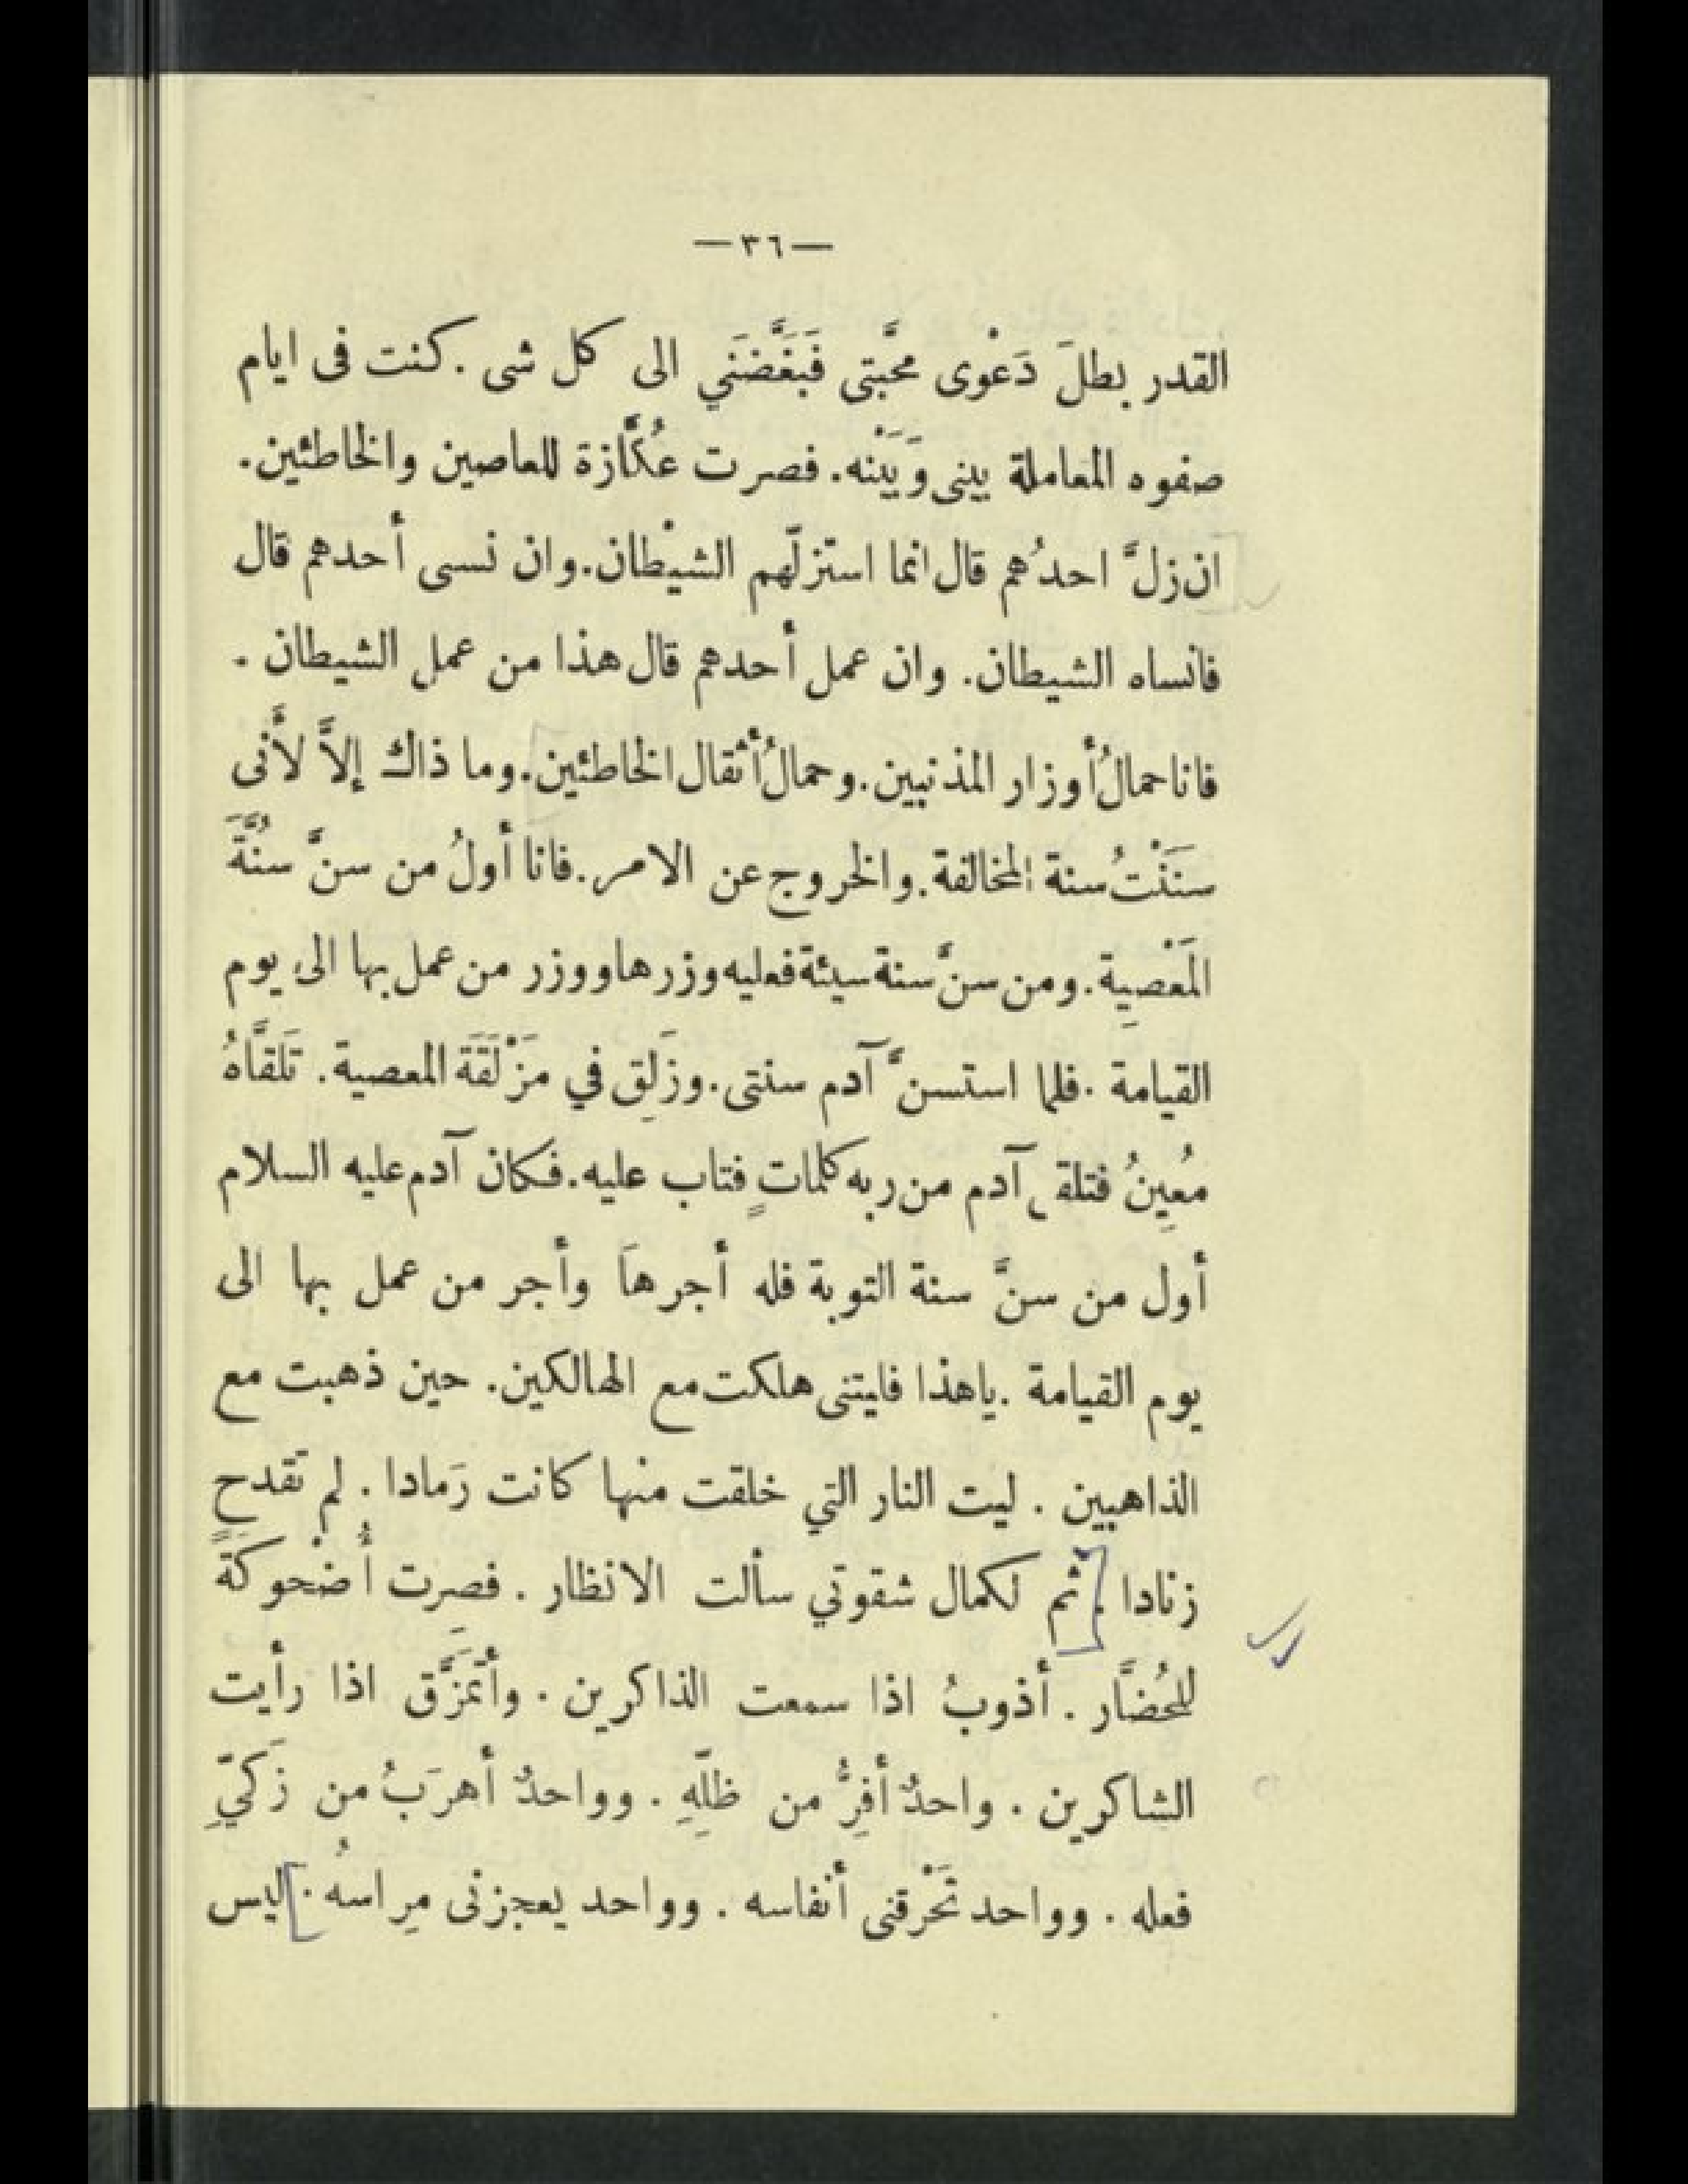 —٣٦—
القدر بطلَ دَعْوى محبَّتى فَبَغَّضَنَي الى كل شى . كنت فى ايام
صفوه المعاملة بينى وَبَيْنه. فصرت عُكَّازة للعاصين والخاطئين.
ان زلَّ احدُهم قال انما استزلّهم الشيْطان. وان نسى أحدهم قال
فانساه الشيطان. وان عمل أحدهم قال هذا من عمل الشيطان .
فانا حمالُ أوزار المذنبين. وحمالُ أثقال الخاطئين. وما ذاك إلاَّ لأَنى
سنَنْتُ سنة المخالفة. والخروج عن الامر. فانا أولُ من سنَّ سنُنَّةَ
المَعْصيِة. ومن سنَّ سنة سيئة فعليه وزرها ووزر من عمل بها الى يوم
القيامة . فلما استسنَّ آدم سنتى. وزَلِق في مَزْلَقَة المعصية. تَلَقَّاهُ
مُعِينُ فتلقى آدم من ربه كلماتٍ فتاب عليه. فكان آدم عليه السلام
أول من سنَّ سنة التوبة فله أجرهاَ وأجر من عمل بها الى
يوم القيامة . ياهذا فليتنى هلكت مع الهالكين. حين ذهبت مع
الذاهبين . ليت النار التي خلقت منها كانت رَمادا . لم تقدح
زنادا . [ثم لكمال شقوتي سألت الانظار . فصِرت أُضْحوكَةً
للحُضَّار . أذوبُ اذا سمعت الذاكرين . وأتمَزَّق اذا رأيت
الشاكرين . واحدٌ أفِرُّ من ظلِّهِ . وواحدٌ أهرَبُ من زَكيِّ
فعله . وواحد تَحْرقنى أنفاسه . وواحد يعجزنى مِراسهُ .] ليس